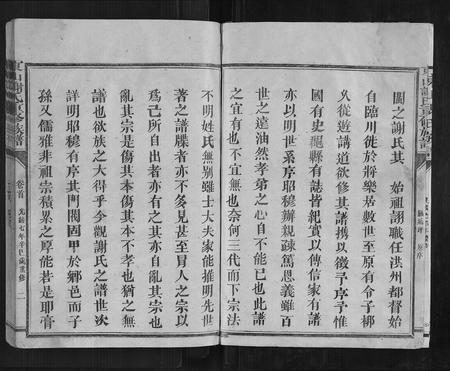 閩之謝氏其 始祖詡職任洪州都督始
自臨川徙於將樂居數世至原有令子
乆從遊講道欲修其譜携以徵予序予惟
國有史郡縣有誌皆紀實以傳信家有譜
亦以明世系序昭穆辦親疎篤恩義雖百
世之遠油然孝弟之心自不能已也此譜
之宜有也不宜無也奈何三代而下宗法
不明姓氏無別雖士大夫家能推明先世
著之譜牒者亦不多見甚至冐人之宗以
爲己所自出者有之亦有自亂其宗也
亂其宗是傷其本傷其本不孝也猶之無
譜也欲族之大得乎今觀謝氏之譜世次
詳明昭穆有序其門閥固甲於鄉邑而子
孫又儒雅非祖宗積累之厚能若是耶膏
東山謝氏重修族譜
卷首
光緒七年辛巳歲重修
二